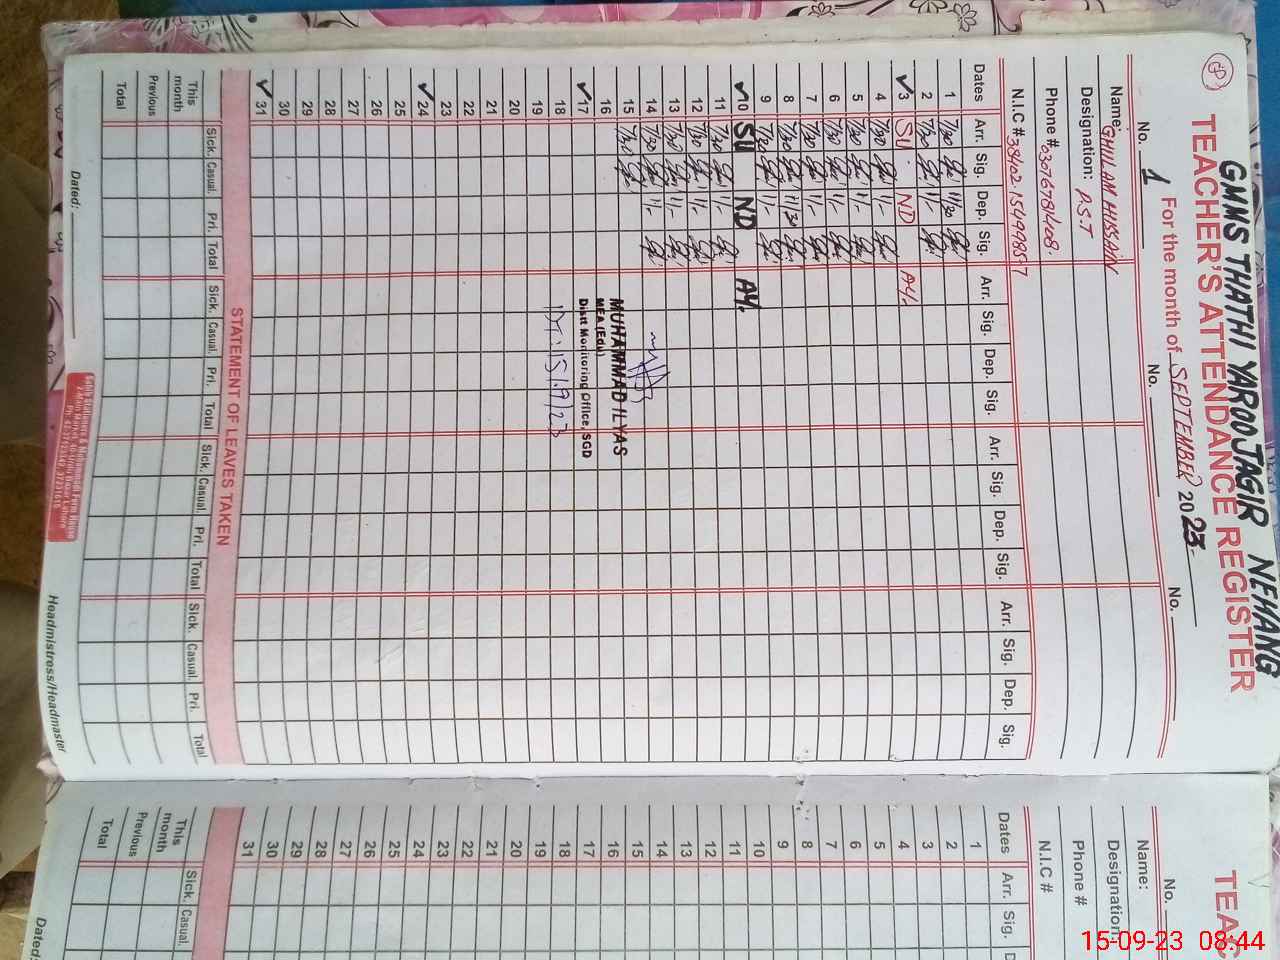 GMMS THATHI YAROO JAGIR NEHANG
TEACHER'S ATTENDANCE REGISTER
For the month of SEPTEMBER 2023
No. 1 No. No.
Name: GHULAM HUSSAIN
Designation: P.S.T
Phone # 03076781408.
N.I.C # 38402-1549985-7
Dates Arr. Sig. Dep. Sig. Arr. Sig. Dep. Sig. Arr. Sig. Dep. Sig. Arr. Sig. Dep. Sig.
1 7/30 11/30
2 7/30 11/-
3 SU ND AY.
4 7/30 11/-
5 7/30 11/-
6 7/30 11/-
7 7/30 11/-
8 7/30 11/30
9 7/30 11/-
10 SU ND AY.
11 7/30 11/-
12 7/30 11/-
13 7/30 11/-
14 7/30 11/-
15 7/30
16
17
18
19
20
21
22
23
24
25
26
27
28
29
30
31
MUHAMMAD ILYAS
MEA (Edu)
Distt Monitoring Office, SGD
DT: 15/9/23
STATEMENT OF LEAVES TAKEN
Sick. Casual. Pri. Total Sick. Casual. Pri. Total Sick. Casual. Pri. Total Sick. Casual. Pri. Total
This month
Previous
Total
Dated:
Headmistress/Headmaster
TEAC
No.
Name:
Designation:
Phone #
N.I.C #
Dates Arr. Sig.
1
2
3
4
5
6
7
8
9
10
11
12
13
14
15
16
17
18
19
20
21
22
23
24
25
26
27
28
29
30
31
Sick. Casual.
This month
Previous
Total
Dated:
15-09-23 08:44